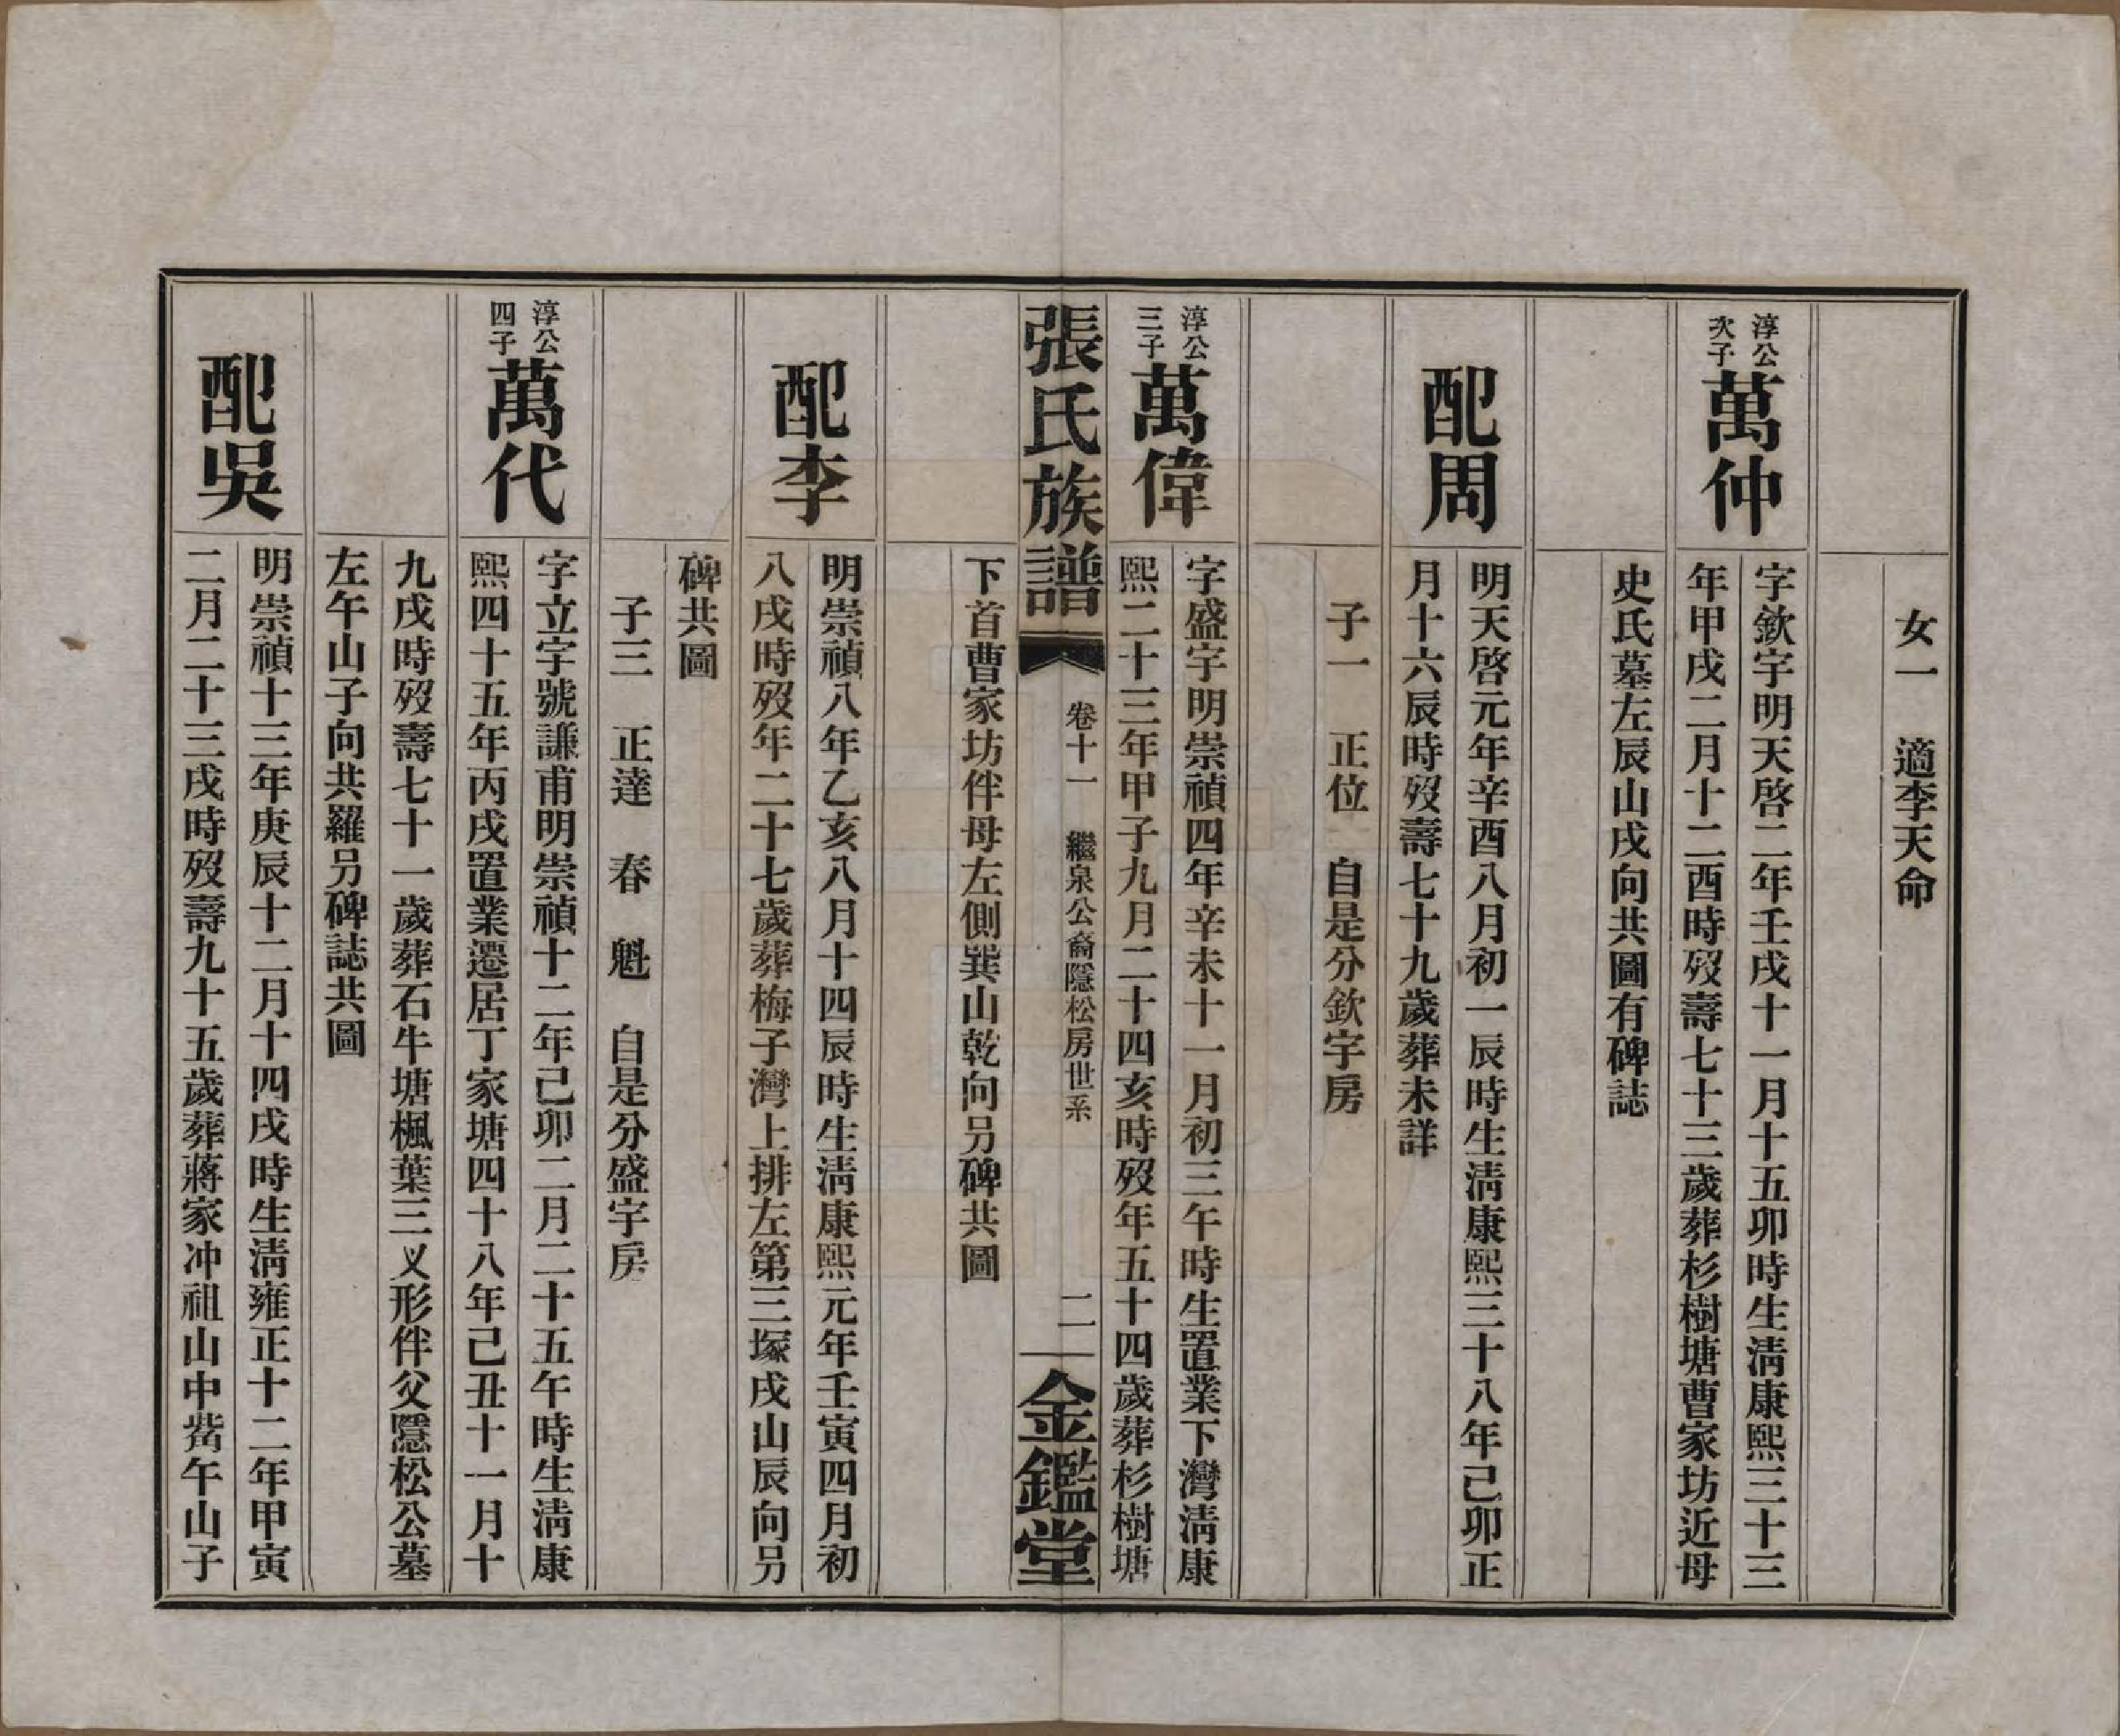 女一　適李天命
淳公次子
萬仲
字欽宇明天啓二年壬戌十一月十五卯時生淸康熙三十三
年甲戌二月十二酉時歿壽七十三歲葬杉樹塘曹家坊近母
史氏墓左辰山戌向共圖有碑誌
配周
明天啓元年辛酉八月初一辰時生淸康熙三十八年己卯正
月十六辰時歿壽七十九歲葬未詳
子一　正位　自是分欽宇房
淳公三子
萬偉
字盛宇明崇禎四年辛未十一月初三午時生置業下灣淸康
熙二十三年甲子九月二十四亥時歿年五十四歲葬杉樹塘
張氏族譜
卷十一　繼泉公裔隱松房世系
二
金鑑堂
下首曹家坊伴母左側巽山乾向另碑共圖
配李
明崇禎八年乙亥八月十四辰時生淸康熙元年壬寅四月初
八戌時歿年二十七歲葬梅子灣上排左第三塚戌山辰向另
碑共圖
子三　正達　春　魁　自是分盛宇房
淳公四子
萬代
字立宇號謙甫明崇禎十二年己卯二月二十五午時生淸康
熙四十五年丙戌置業遷居丁家塘四十八年己丑十一月十
九戌時歿壽七十一歲葬石牛塘楓葉三义形伴父隱松公墓
左午山子向共羅另碑誌共圖
配吳
明崇禎十三年庚辰十二月十四戌時生淸雍正十二年甲寅
二月二十三戌時歿壽九十五歲葬蔣家冲祖山中嵤午山子